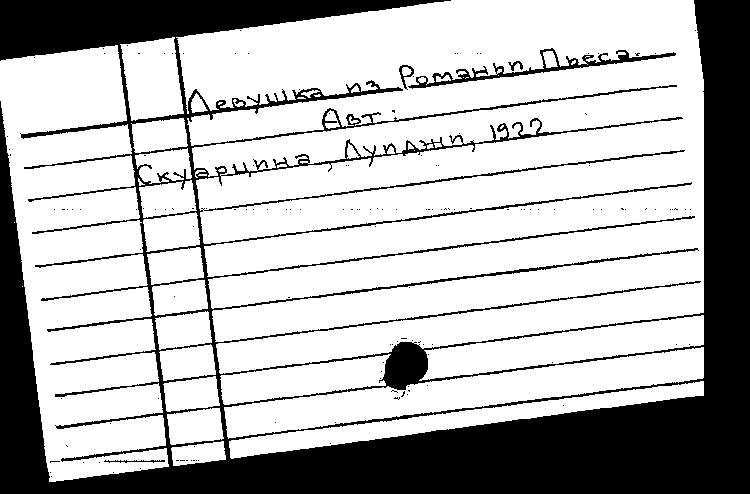 Девушка из Романьи. Пьеса.
Авт.:
Скуарцина, Луиджи, 1922